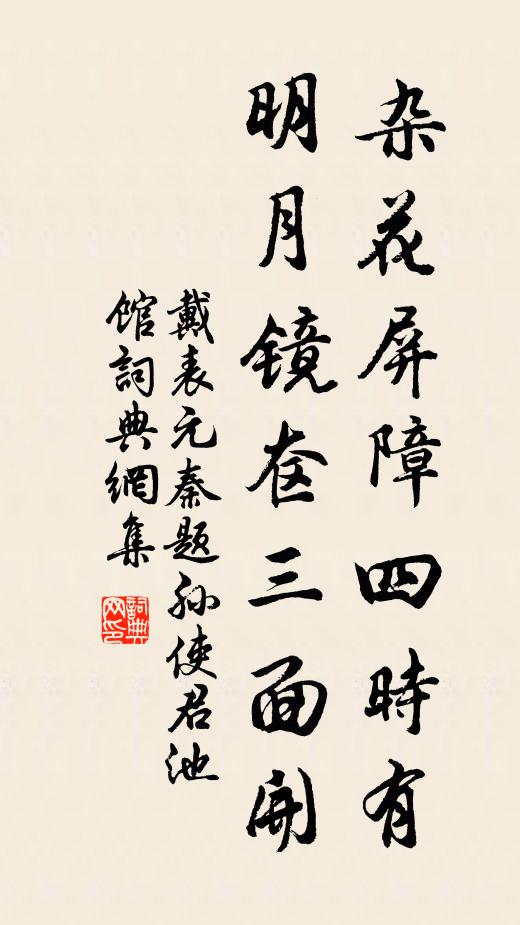 杂花屏障四時有
明月镜奁三面開
戴表元秦题孙使君池
馆詞典網集
詞典网印